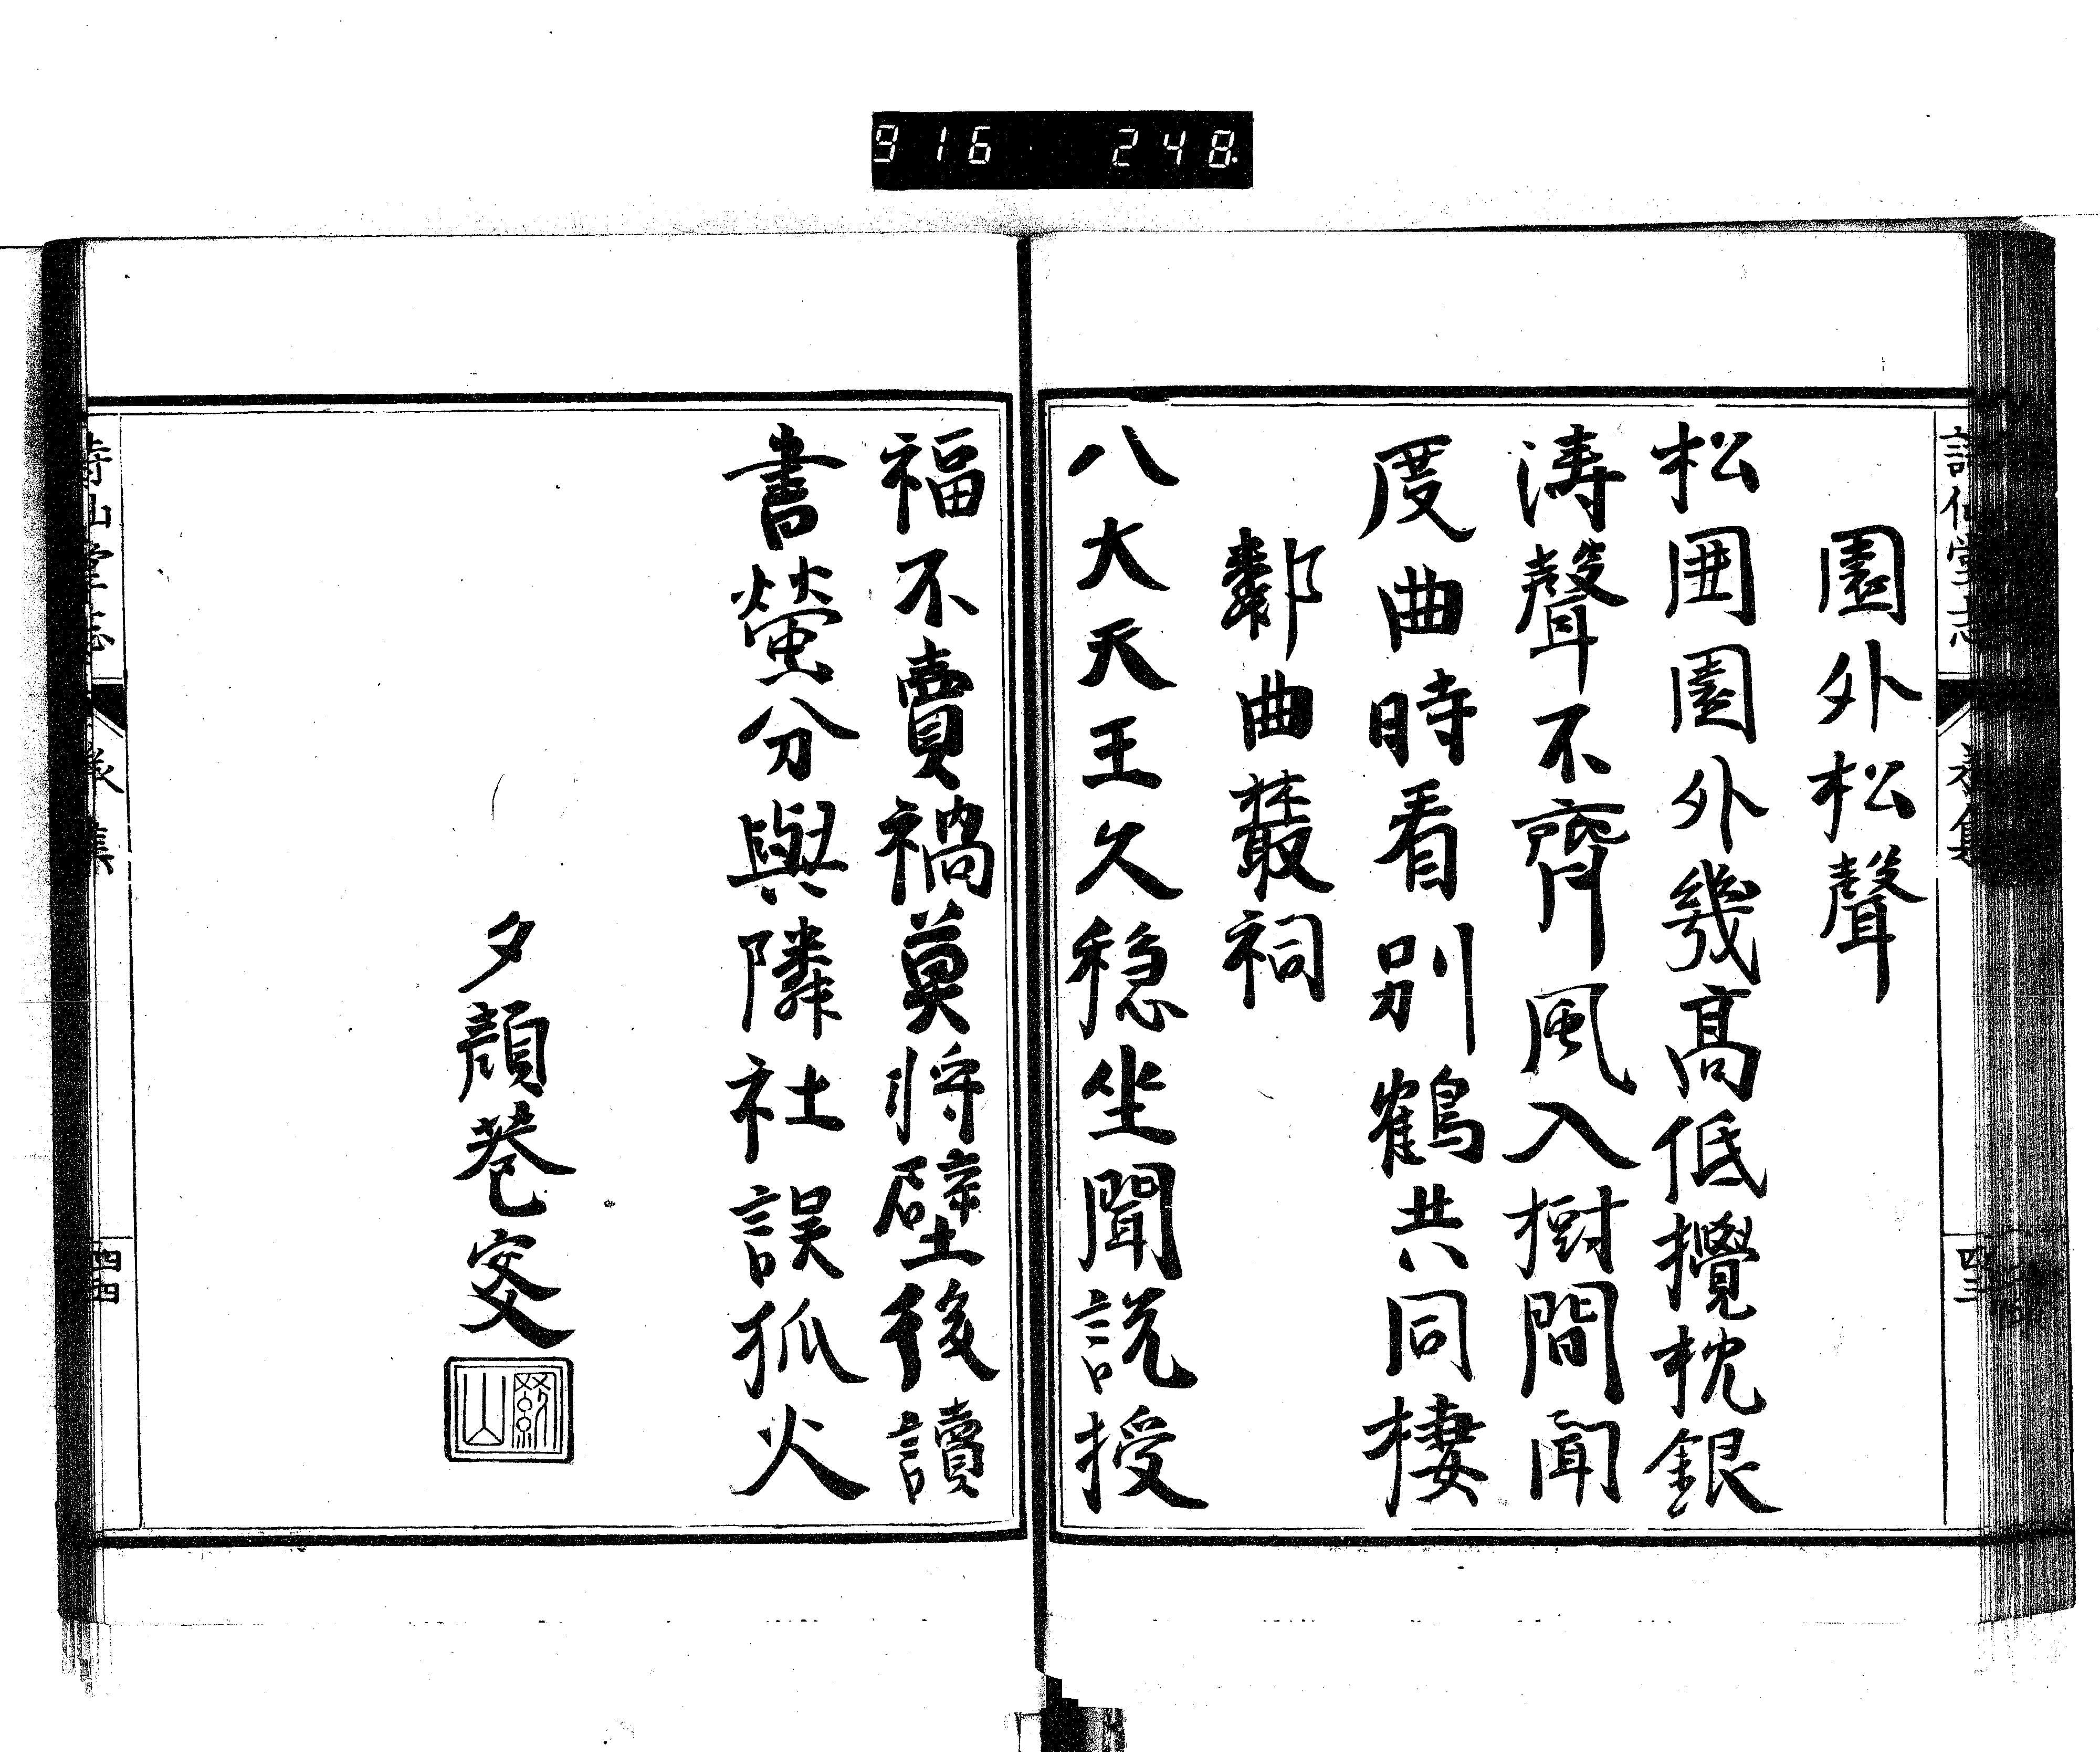 916 248.
園外松聲
松囲園外幾髙低攪枕銀
濤聲不齊風入樹間聞
度曲時看別鶴共同棲
鄰曲叢祠
八大天王久穏坐聞説授
福不賣禍莫將壁後讀
書螢分與隣社誤狐火
夕顔巷叜
四三
四四